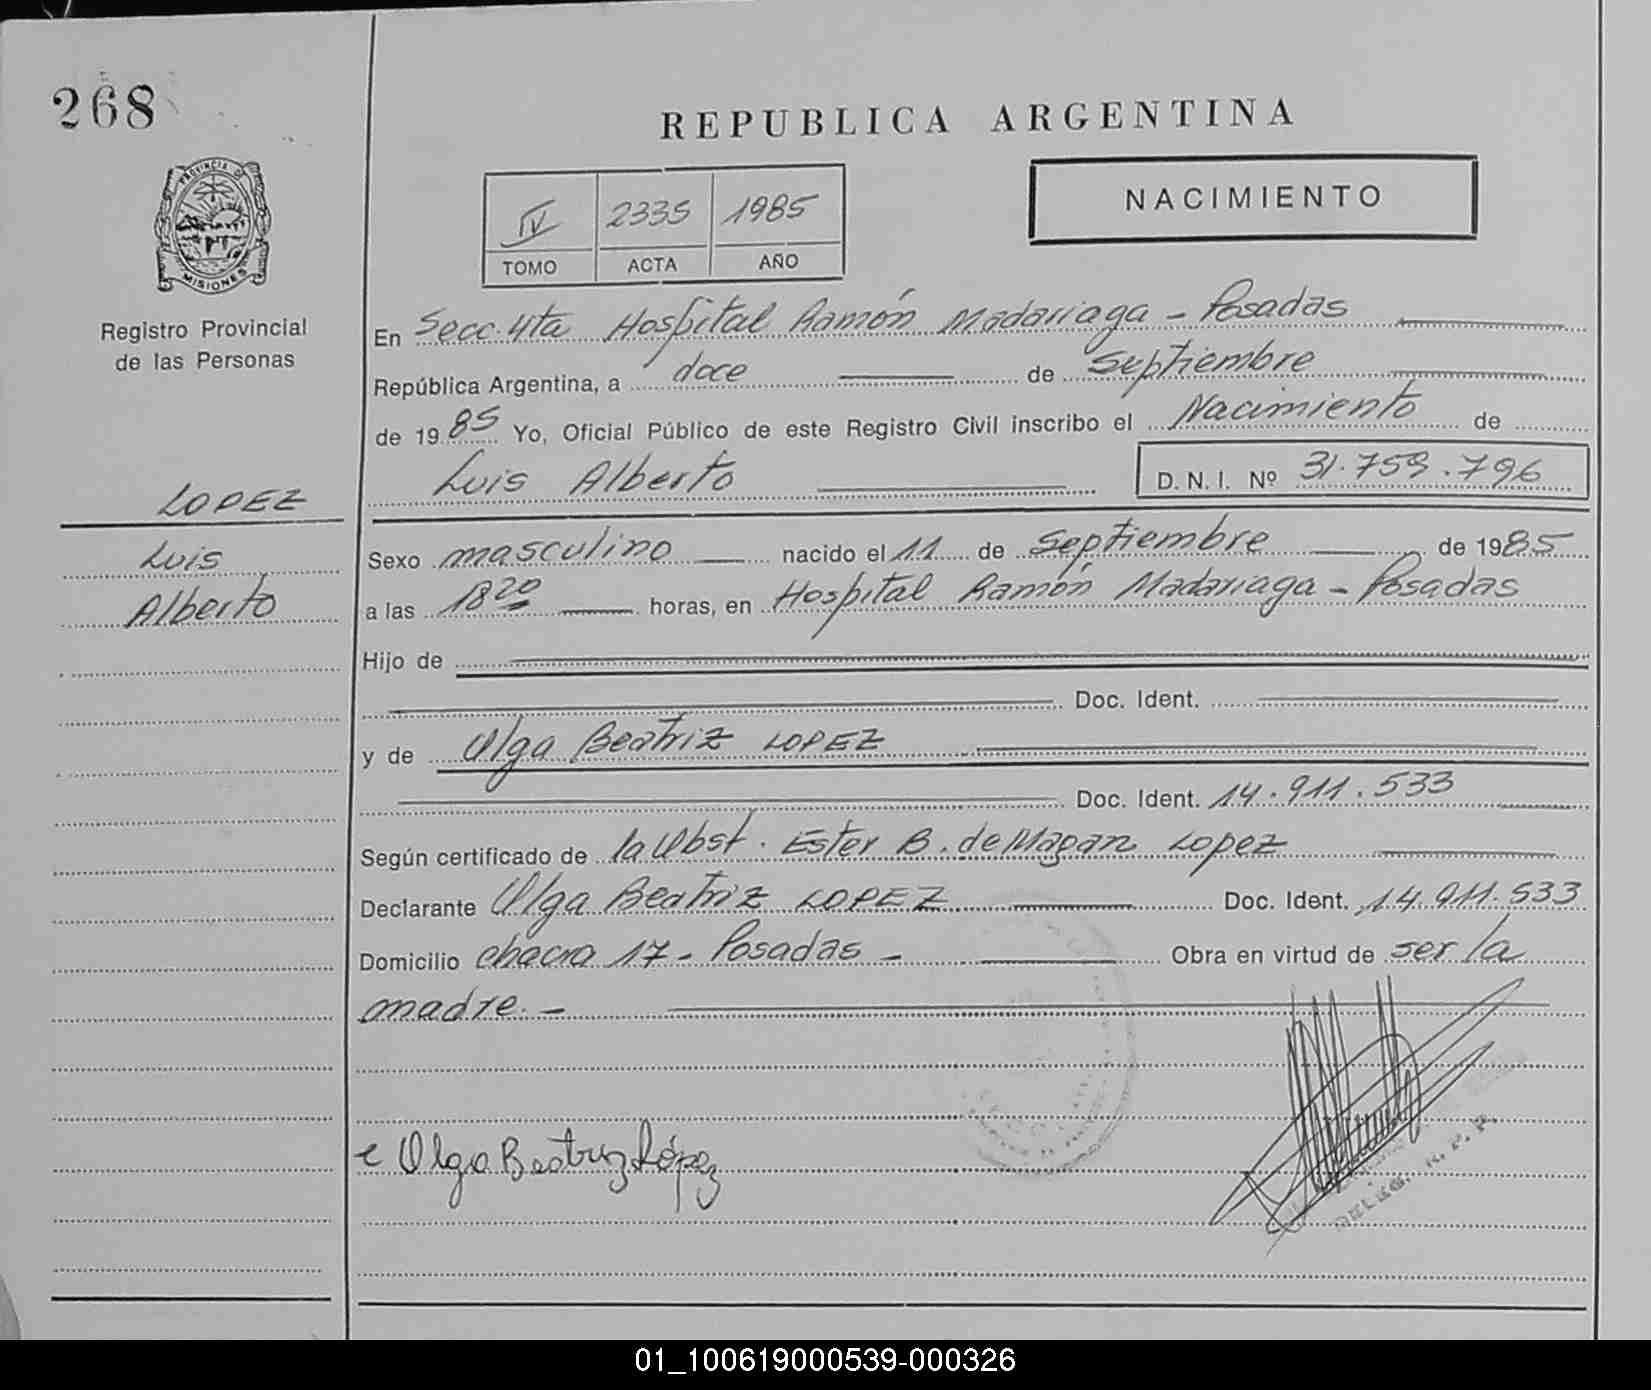 268
REPUBLICA ARGENTINA
PROVINCIA DE
MISIONES
Registro Provincial
de las Personas
IV 2335 1985
TOMO ACTA AÑO
NACIMIENTO
En Secc. 4ta Hospital Ramón Madariaga - Posadas
República Argentina, a doce de Septiembre
de 1985 Yo, Oficial Público de este Registro Civil inscribo el Nacimiento de
Luis Alberto D. N. I. Nº 31.759.796
LOPEZ
Luis
Alberto
Sexo masculino nacido el 11 de Septiembre de 1985
a las 18 20 horas, en Hospital Ramón Madariaga - Posadas
Hijo de
Doc. Ident.
y de Olga Beatriz LOPEZ
Doc. Ident. 14.911.533
Según certificado de la Obst. Ester B. de Magan Lopez
Declarante Olga Beatriz LOPEZ Doc. Ident. 14.911.533
Domicilio chacra 17 - Posadas - Obra en virtud de ser la
madre. -
Olga Beatriz López
DELEG. R. P. P.
01_100619000539-000326